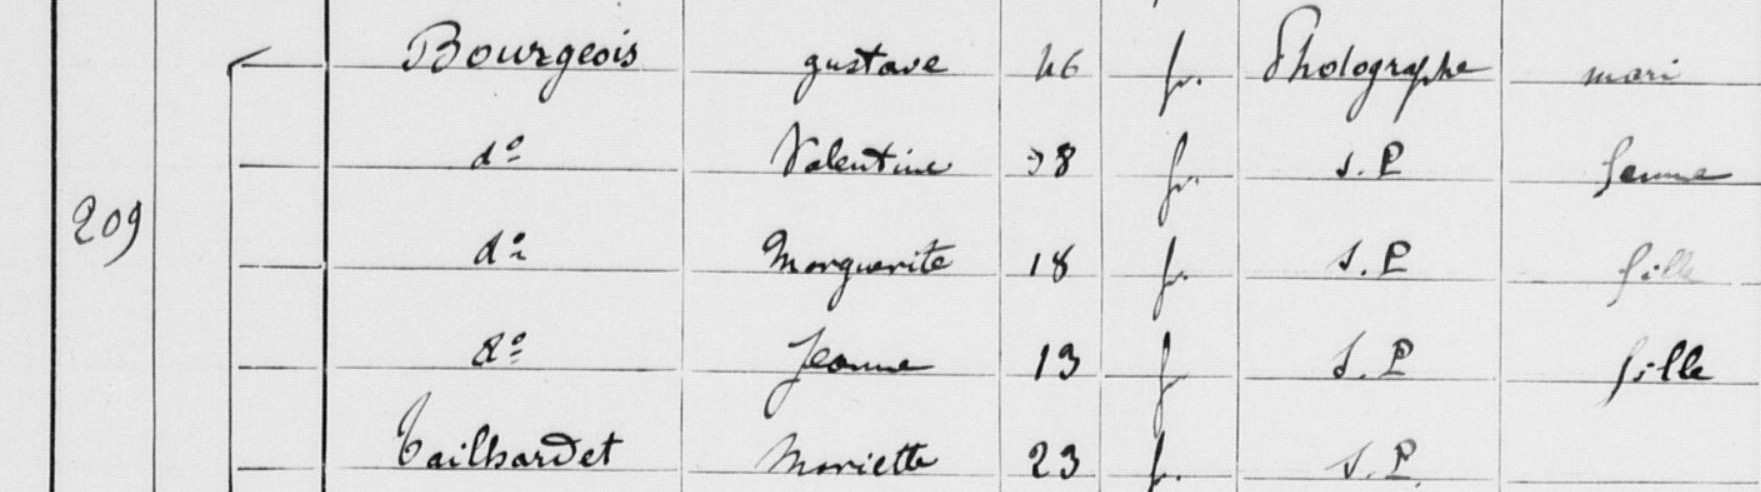 Bourgeois gustave 46 fr. Photographe mari
do Valentine 38 fr. S.P femme
209
do Marguerite 18 fr. S.P fille
do Jeanne 13 f S.P fille
Tailhardet Mariette 23 f. S.P.